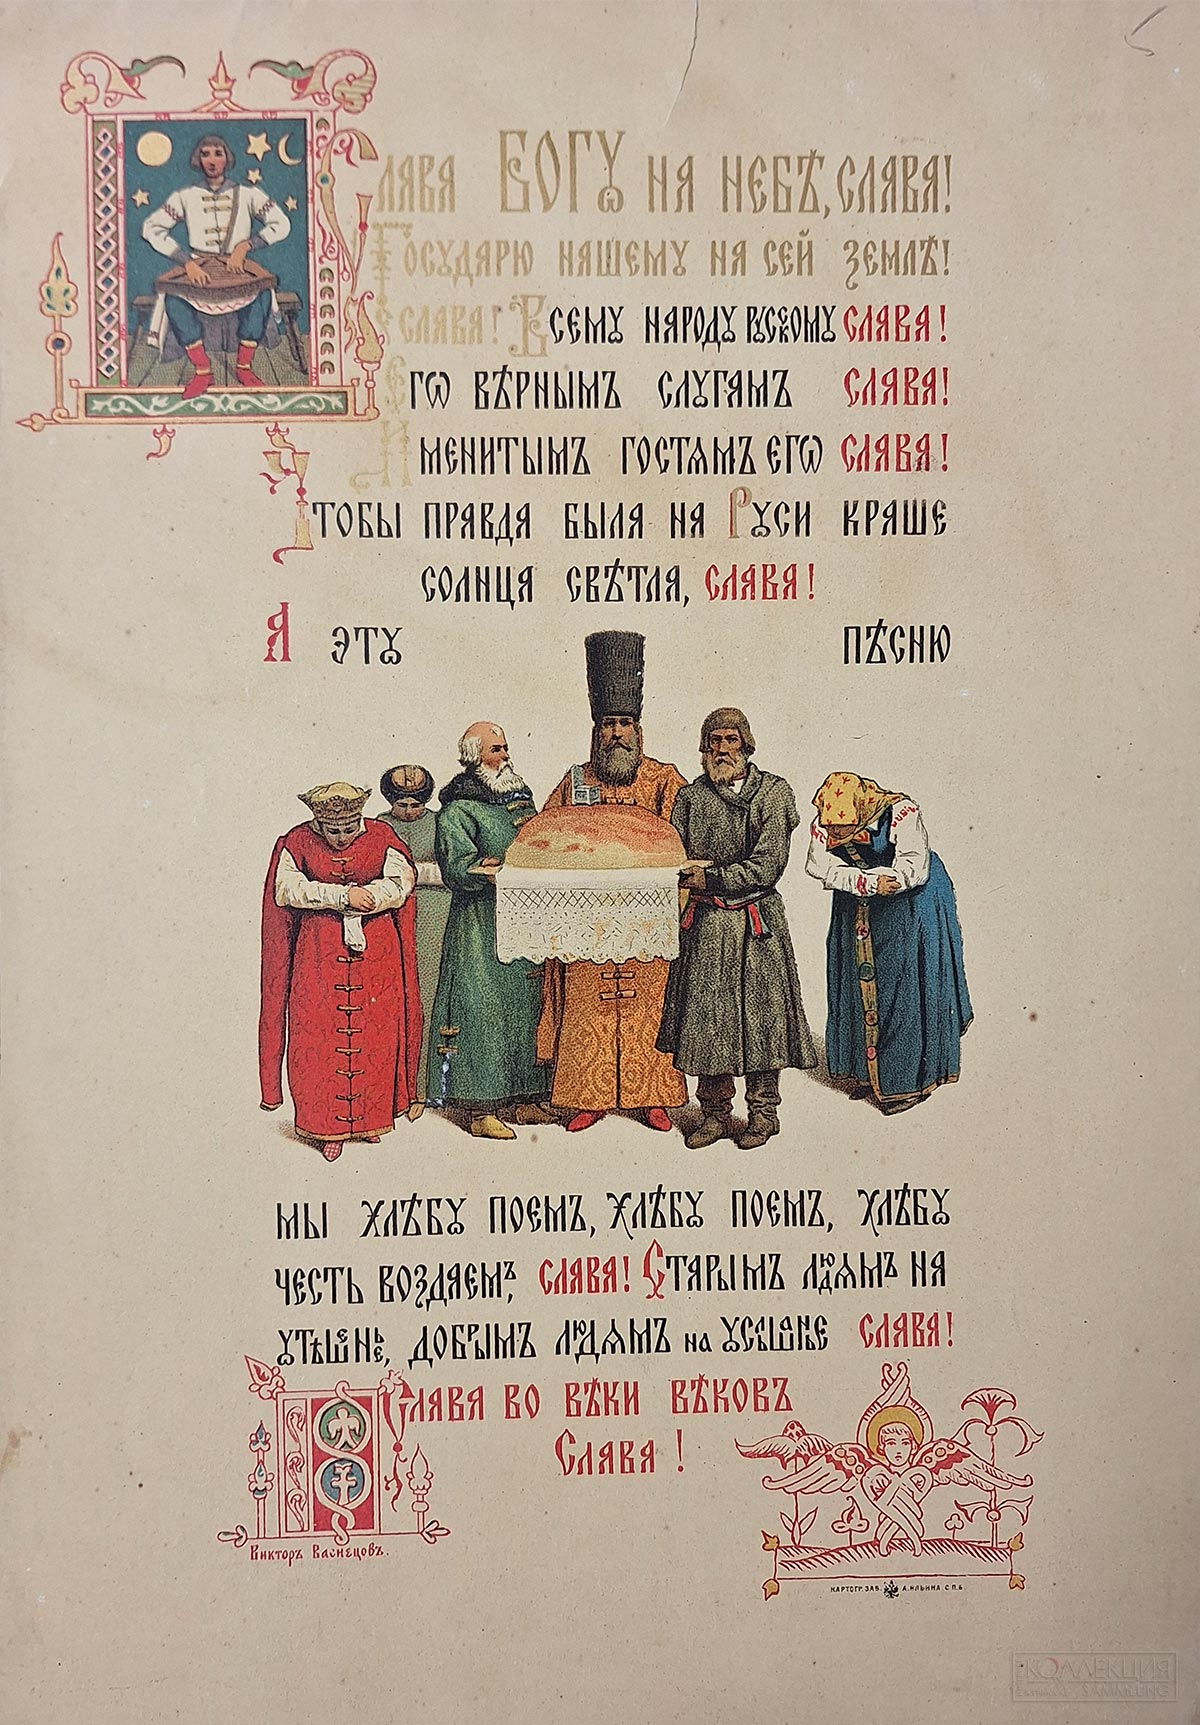 Слава Богу на небѣ, слава!
Государю нашему на сей землѣ!
слава! Всему народу русскому слава!
Егѡ вѣрнымъ слугамъ слава!
Именитымъ гостямъ егѡ слава!
Чтобы правда была на Руси краше
солнца свѣтла, слава!
А эту пѣсню
мы хлѣбу поемъ, хлѣбу поемъ, хлѣбу
честь воздаемъ, слава! Старымъ людямъ на
утѣшенье, добрымъ людямъ на услышанье слава!
Слава во вѣки вѣковъ
Слава!
Викторъ Васнецовъ.
КАРТОГР. ЗАВ. А. ИЛЬИНА С.П.Б.
КОЛЛЕКЦИЯ
SAMMLUNG